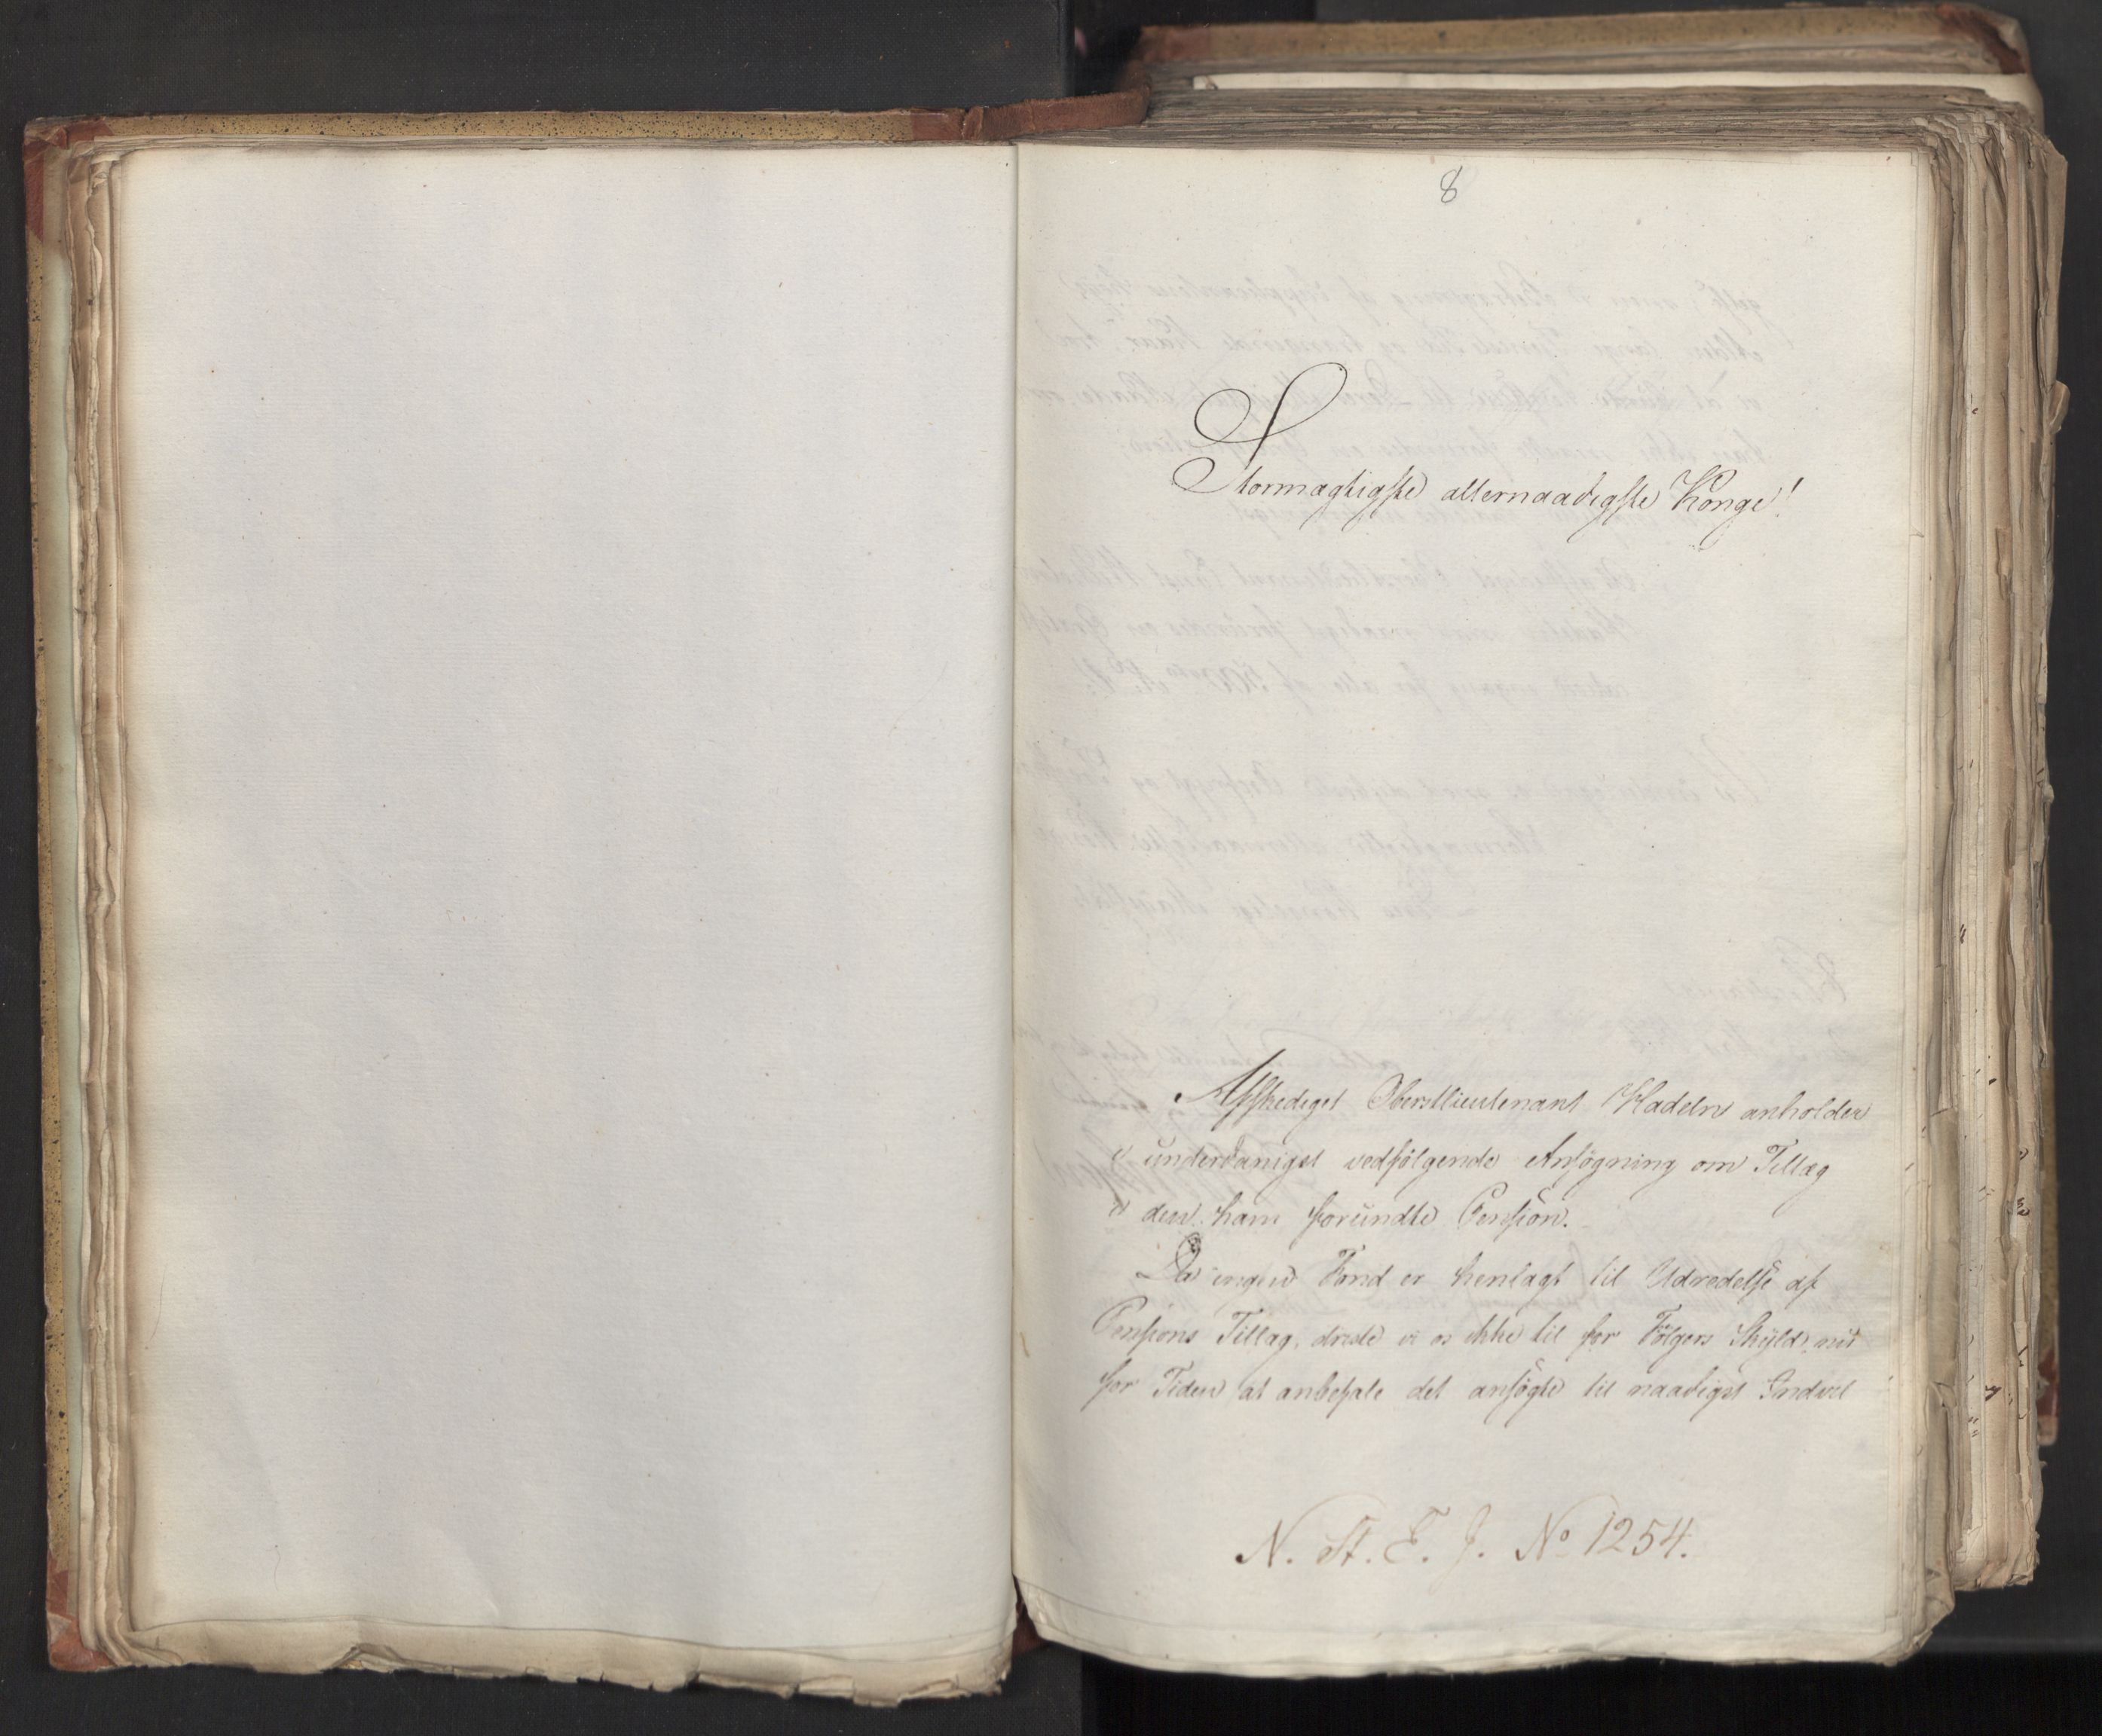 8
Stormagtigste allernaadigste Konge!
Afskediget Oberstlieutenant Hadeln anholder
i underdanigst vedfölgende Ansögning om Tillæg
i den ham forundte Pension.
Da ingen Fond er henlagt til Udredelse af
Pensions Tillæg, driste vi os ikke til for Fölgers Skyld nu
for Tiden at anbefale det ansögte til naadigst Indvil
N. St. E. J. No 1254.